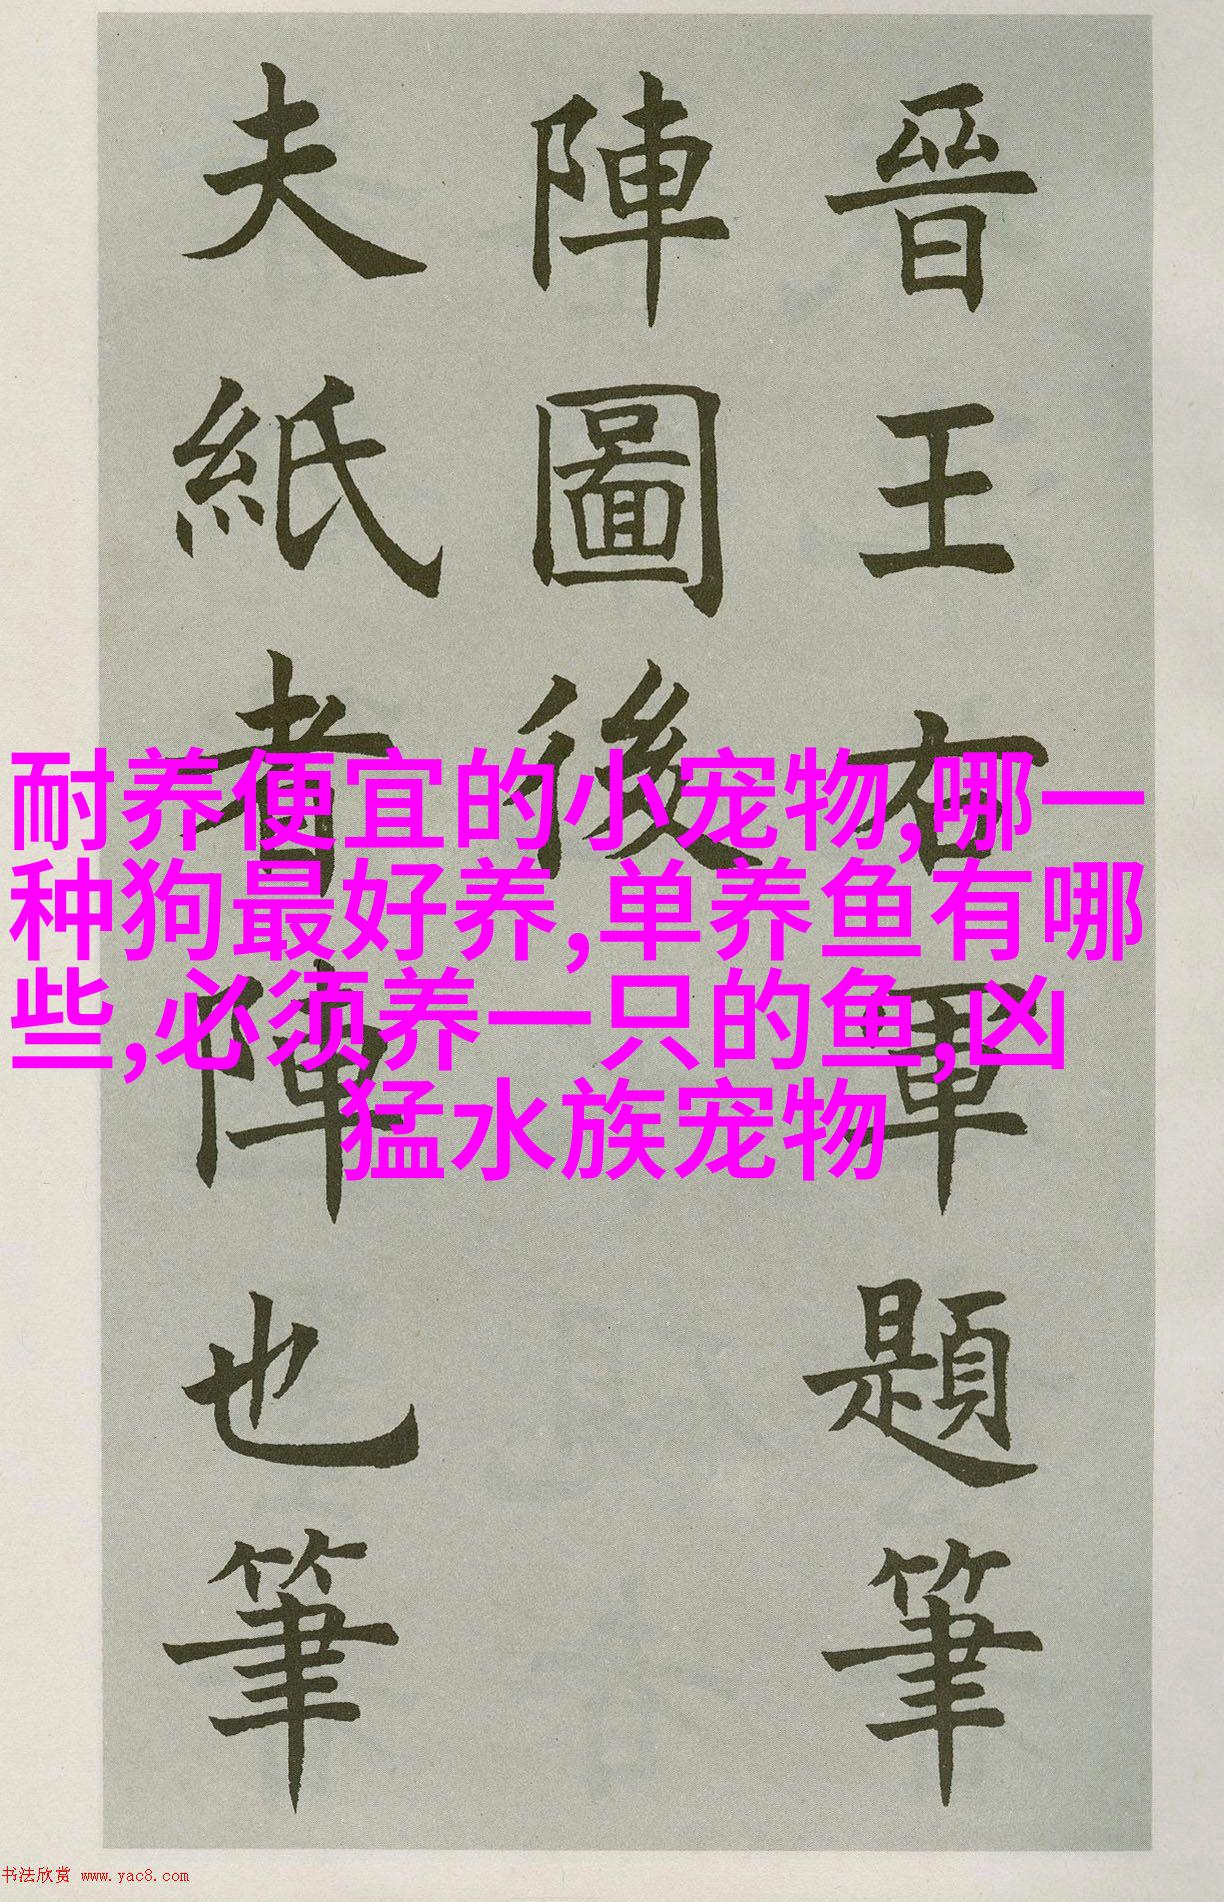 晉王右軍題筆
陣圖後
夫紙者陣也筆
耐养便宜的小宠物,哪一
种狗最好养,单养鱼有哪
些,必须养一只的鱼,凶
猛水族宠物
书法欣赏 www.yac8.com